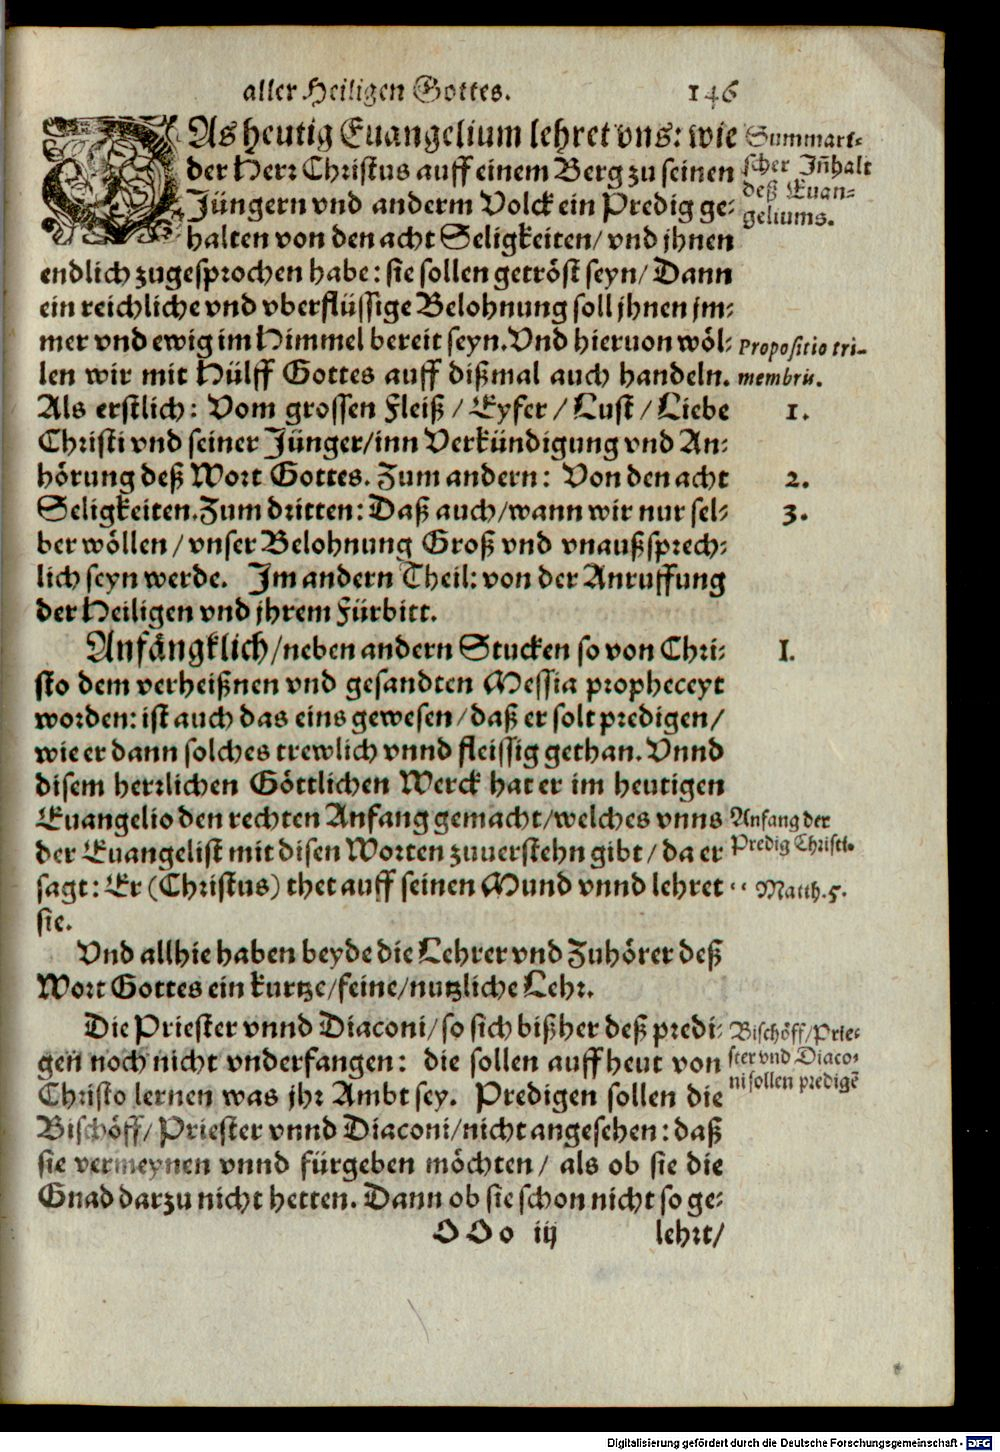 aller Heiligen Gottes. 146
DAs heutig Euangelium lehret vns: wie
der Herr Christus auff einem Berg zu seinen
Jüngern vnd anderm Volck ein Predig ge-
halten von den acht Seligkeiten/ vnd jhnen
endlich zugesprochen habe: sie sollen getröst seyn/ Dann
ein reichliche vnd vberflüssige Belohnung soll jhnen jm-
mer vnd ewig im Himmel bereit seyn. Vnd hieruon wöl-
len wir mit Hülff Gottes auff dißmal auch handeln.
Als erstlich: Vom grossen Fleiß / Eyfer / Lust / Liebe
Christi vnd seiner Jünger/inn Verkündigung vnd An-
hörung deß Wort Gottes. Zum andern: Von den acht
Seligkeiten. Zum dritten: Daß auch/wann wir nur sel-
ber wöllen / vnser Belohnung Groß vnd vnaußsprech-
lich seyn werde. Im andern Theil: von der Anruffung
der Heiligen vnd jhrem Fürbitt.
Anfängklich/neben andern Stucken so von Chri-
sto dem verheißnen vnd gesandten Messia propheceyt
worden: ist auch das eins gewesen/daß er solt predigen/
wie er dann solches trewlich vnnd fleissig gethan. Vnnd
disem herrlichen Göttlichen Werck hat er im heutigen
Euangelio den rechten Anfang gemacht/welches vnns
der Euangelist mit disen Worten zuuerstehn gibt/ da er
sagt: Er (Christus) thet auff seinen Mund vnnd lehret
sie.
Vnd allhie haben beyde die Lehrer vnd Zuhörer deß
Wort Gottes ein kurtze/feine/nutzliche Lehr.
Die Priester vnnd Diaconi/so sich bißher deß predi-
gen noch nicht vnderfangen: die sollen auff heut von
Christo lernen was jhr Ambt sey. Predigen sollen die
Bischöff/ Priester vnnd Diaconi/nicht angesehen: daß
sie vermeynen vnnd fürgeben möchten/ als ob sie die
Gnad darzu nicht hetten. Dann ob sie schon nicht so ge-
OOo iij lehrt/
Summari-
scher Jñhalt
deß Euan-
geliums.
Propositio tri-
membris.
1.
2.
3.
I.
Anfang der
Predig Christi.
Matth. 5.
Bischöff/Prie-
ster vnd Diaco-
ni sollen predigẽ
Digitalisierung gefördert durch die Deutsche Forschungsgemeinschaft - DFG